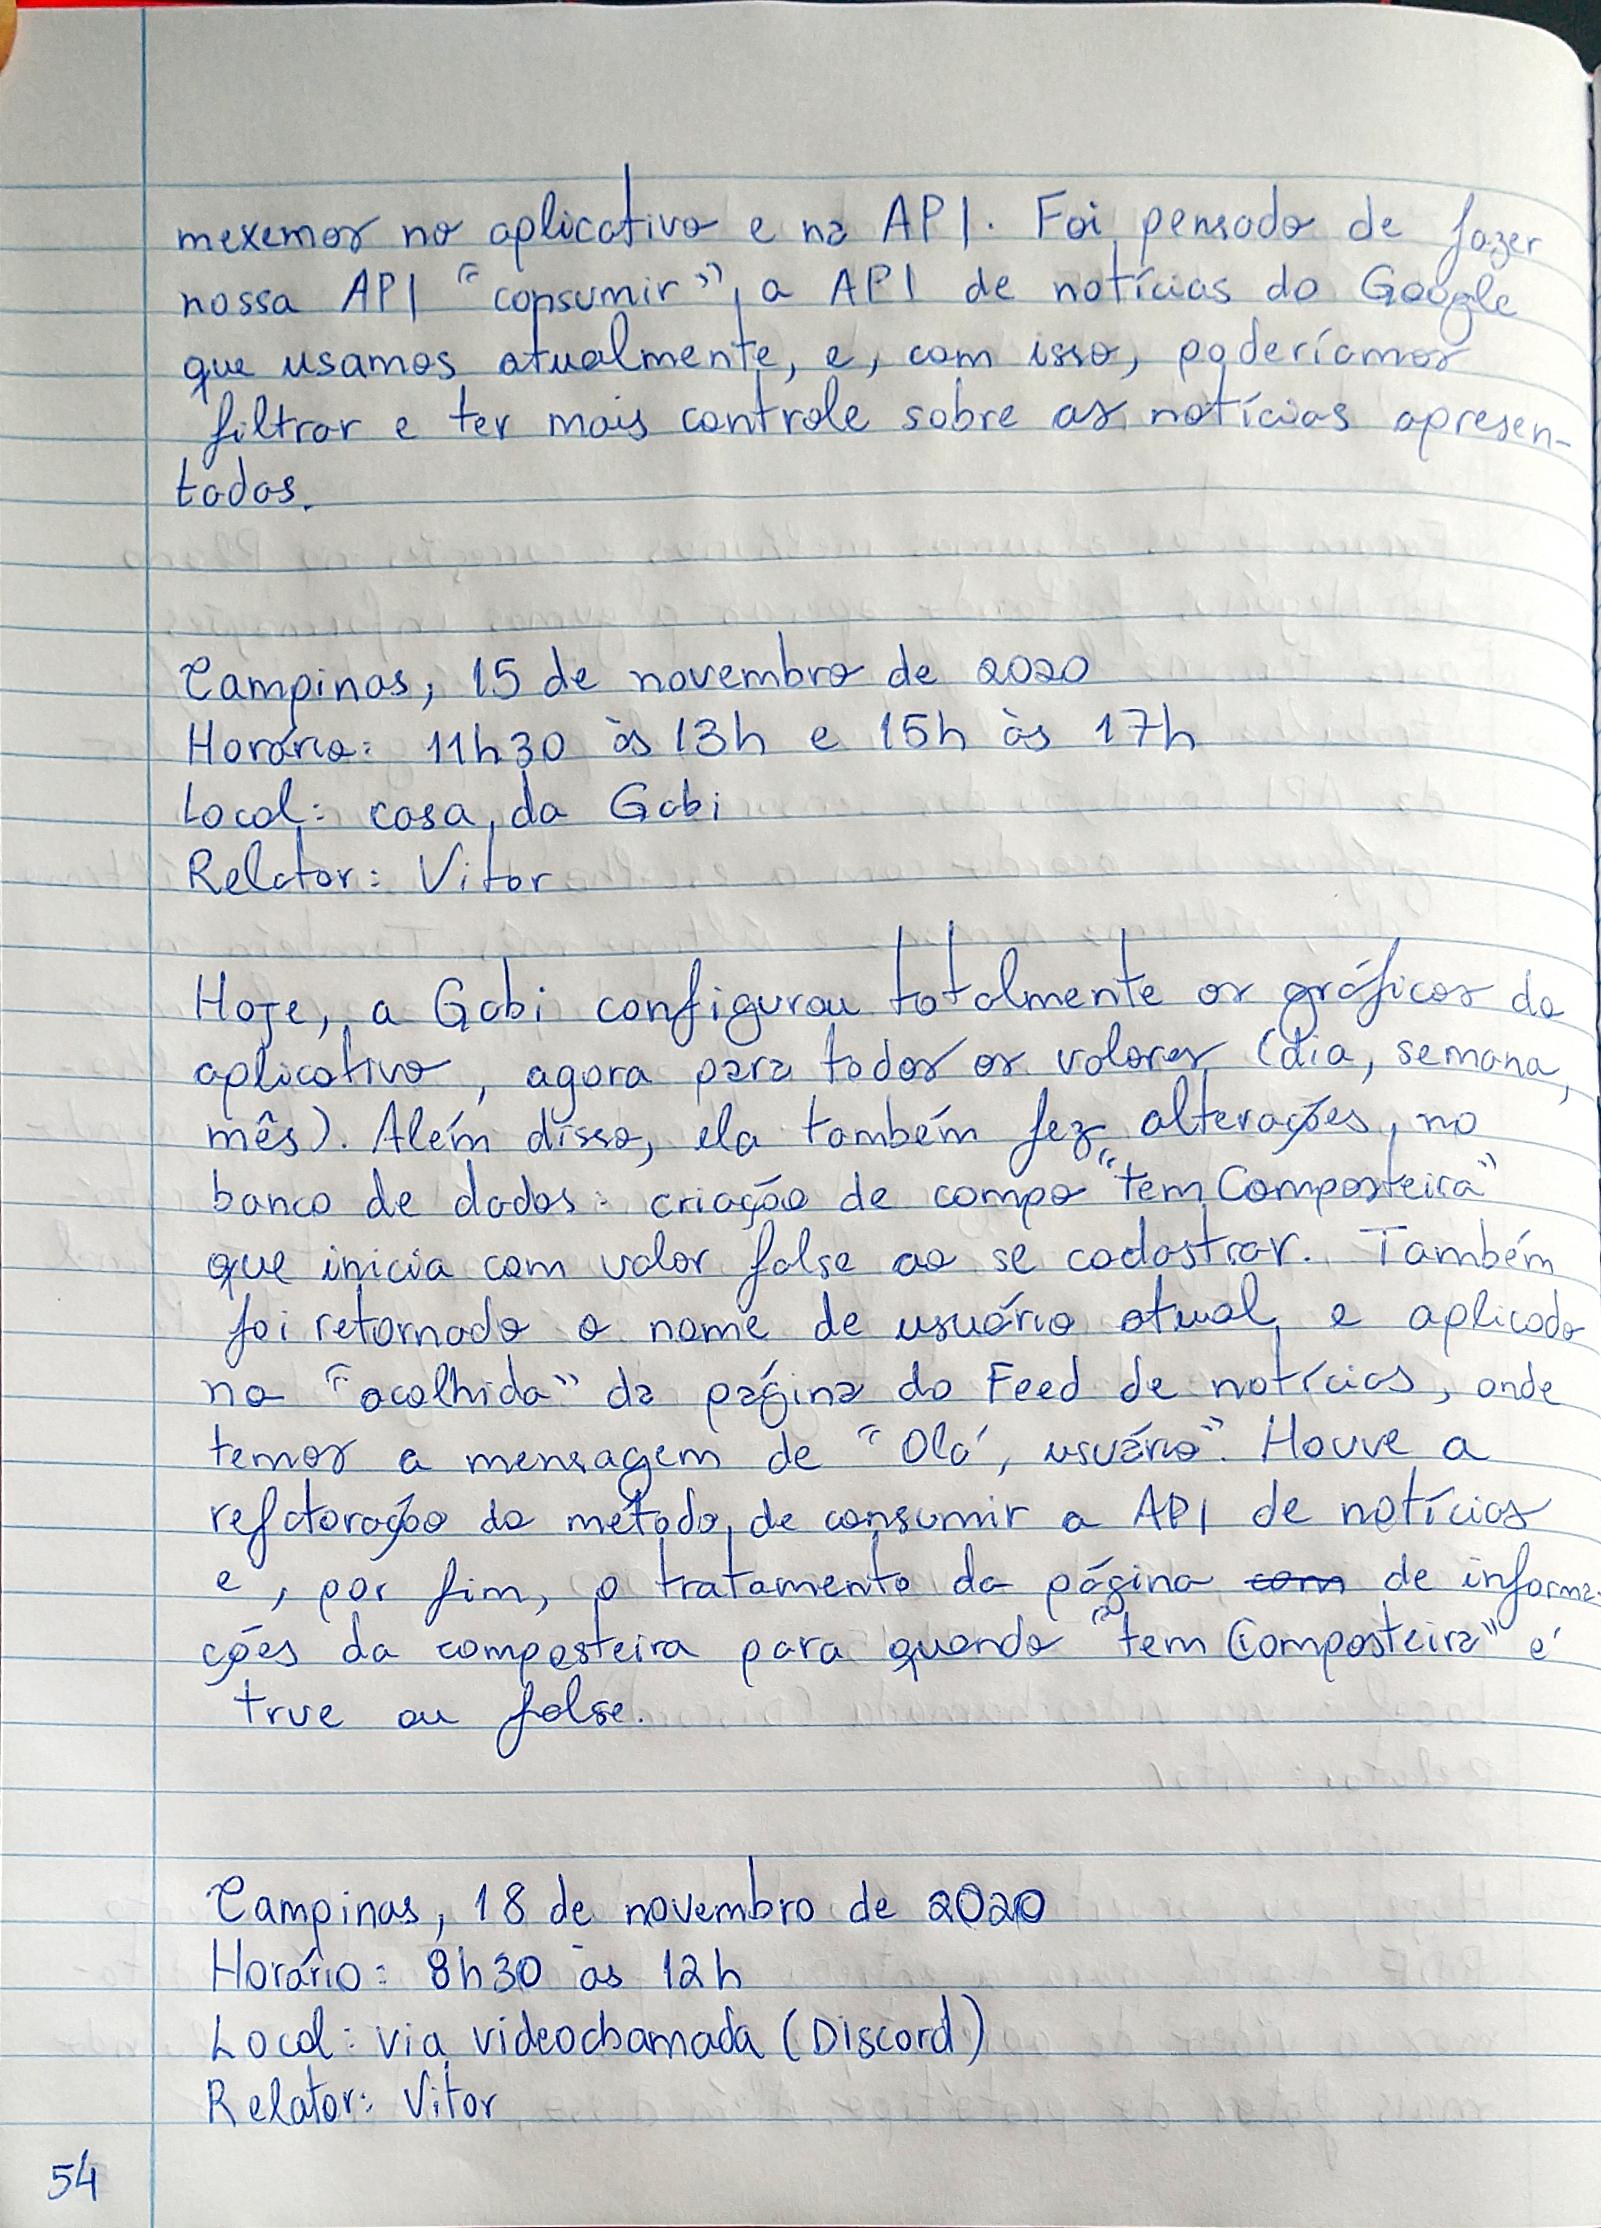 mexemos no aplicativo e na API. Foi pensado de fazer
nossa API "consumir" a API de notícias do Google
que usamos atualmente, e, com isso, poderíamos
filtrar e ter mais controle sobre as notícias apresen-
tadas.
Campinas, 15 de novembro de 2020
Horário: 11h30 às 13h e 15h às 17h
Local: casa da Gabi
Relator: Vitor
Hoje, a Gabi configurou totalmente os gráficos do
aplicativo, agora para todos os valores (dia, semana,
mês). Além disso, ela também fez alterações no
banco de dados: criação de campo "temComposteira"
que inicia com valor false ao se cadastrar. Também
foi retornado o nome de usuário atual e aplicado
na "acolhida" da página do Feed de notícias, onde
temos a mensagem de "Olá, usuário". Houve a
refatoração do método de consumir a API de notícias
e, por fim, o tratamento da página com de informa-
ções da composteira para quando "temComposteira" é
true ou false.
Campinas, 18 de novembro de 2020
Horário: 8h30 às 12h
Local: via videochamada (Discord)
Relator: Vitor
54